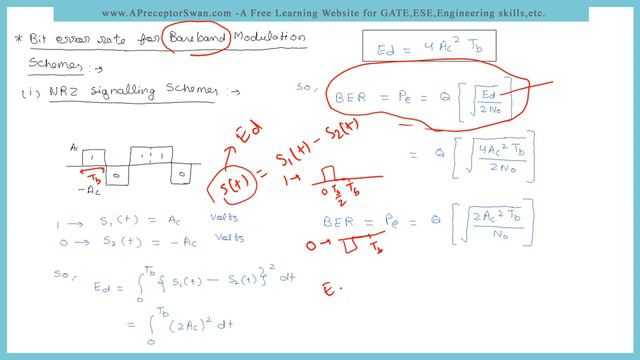 www.APreceptorSwan.com -A Free Learning Website for GATE,ESE,Engineering skills,etc.
* Bit error rate for Baseband Modulation
Schemes :→
(i) NRZ Signalling Schemes :→
Ac
1
1
0
0
Tb
-Ac
1 → S₁(t) = Ac volts
0 → S₂(t) = -Ac volts
so,
Ed = ∫₀^Tb {S₁(t) - S₂(t)}² dt
= ∫₀^Tb (2Ac)² dt
Ed
S(t) = S₁(t) - S₂(t)
1 →
0 Tb/2 Tb
0 →
Tb
E.
Ed = 4Ac² Tb
so,
BER = Pe = Q [√(Ed/2N₀)]
= Q [√(4Ac² Tb/2N₀)]
BER = Pe = Q [√(2Ac² Tb/N₀)]